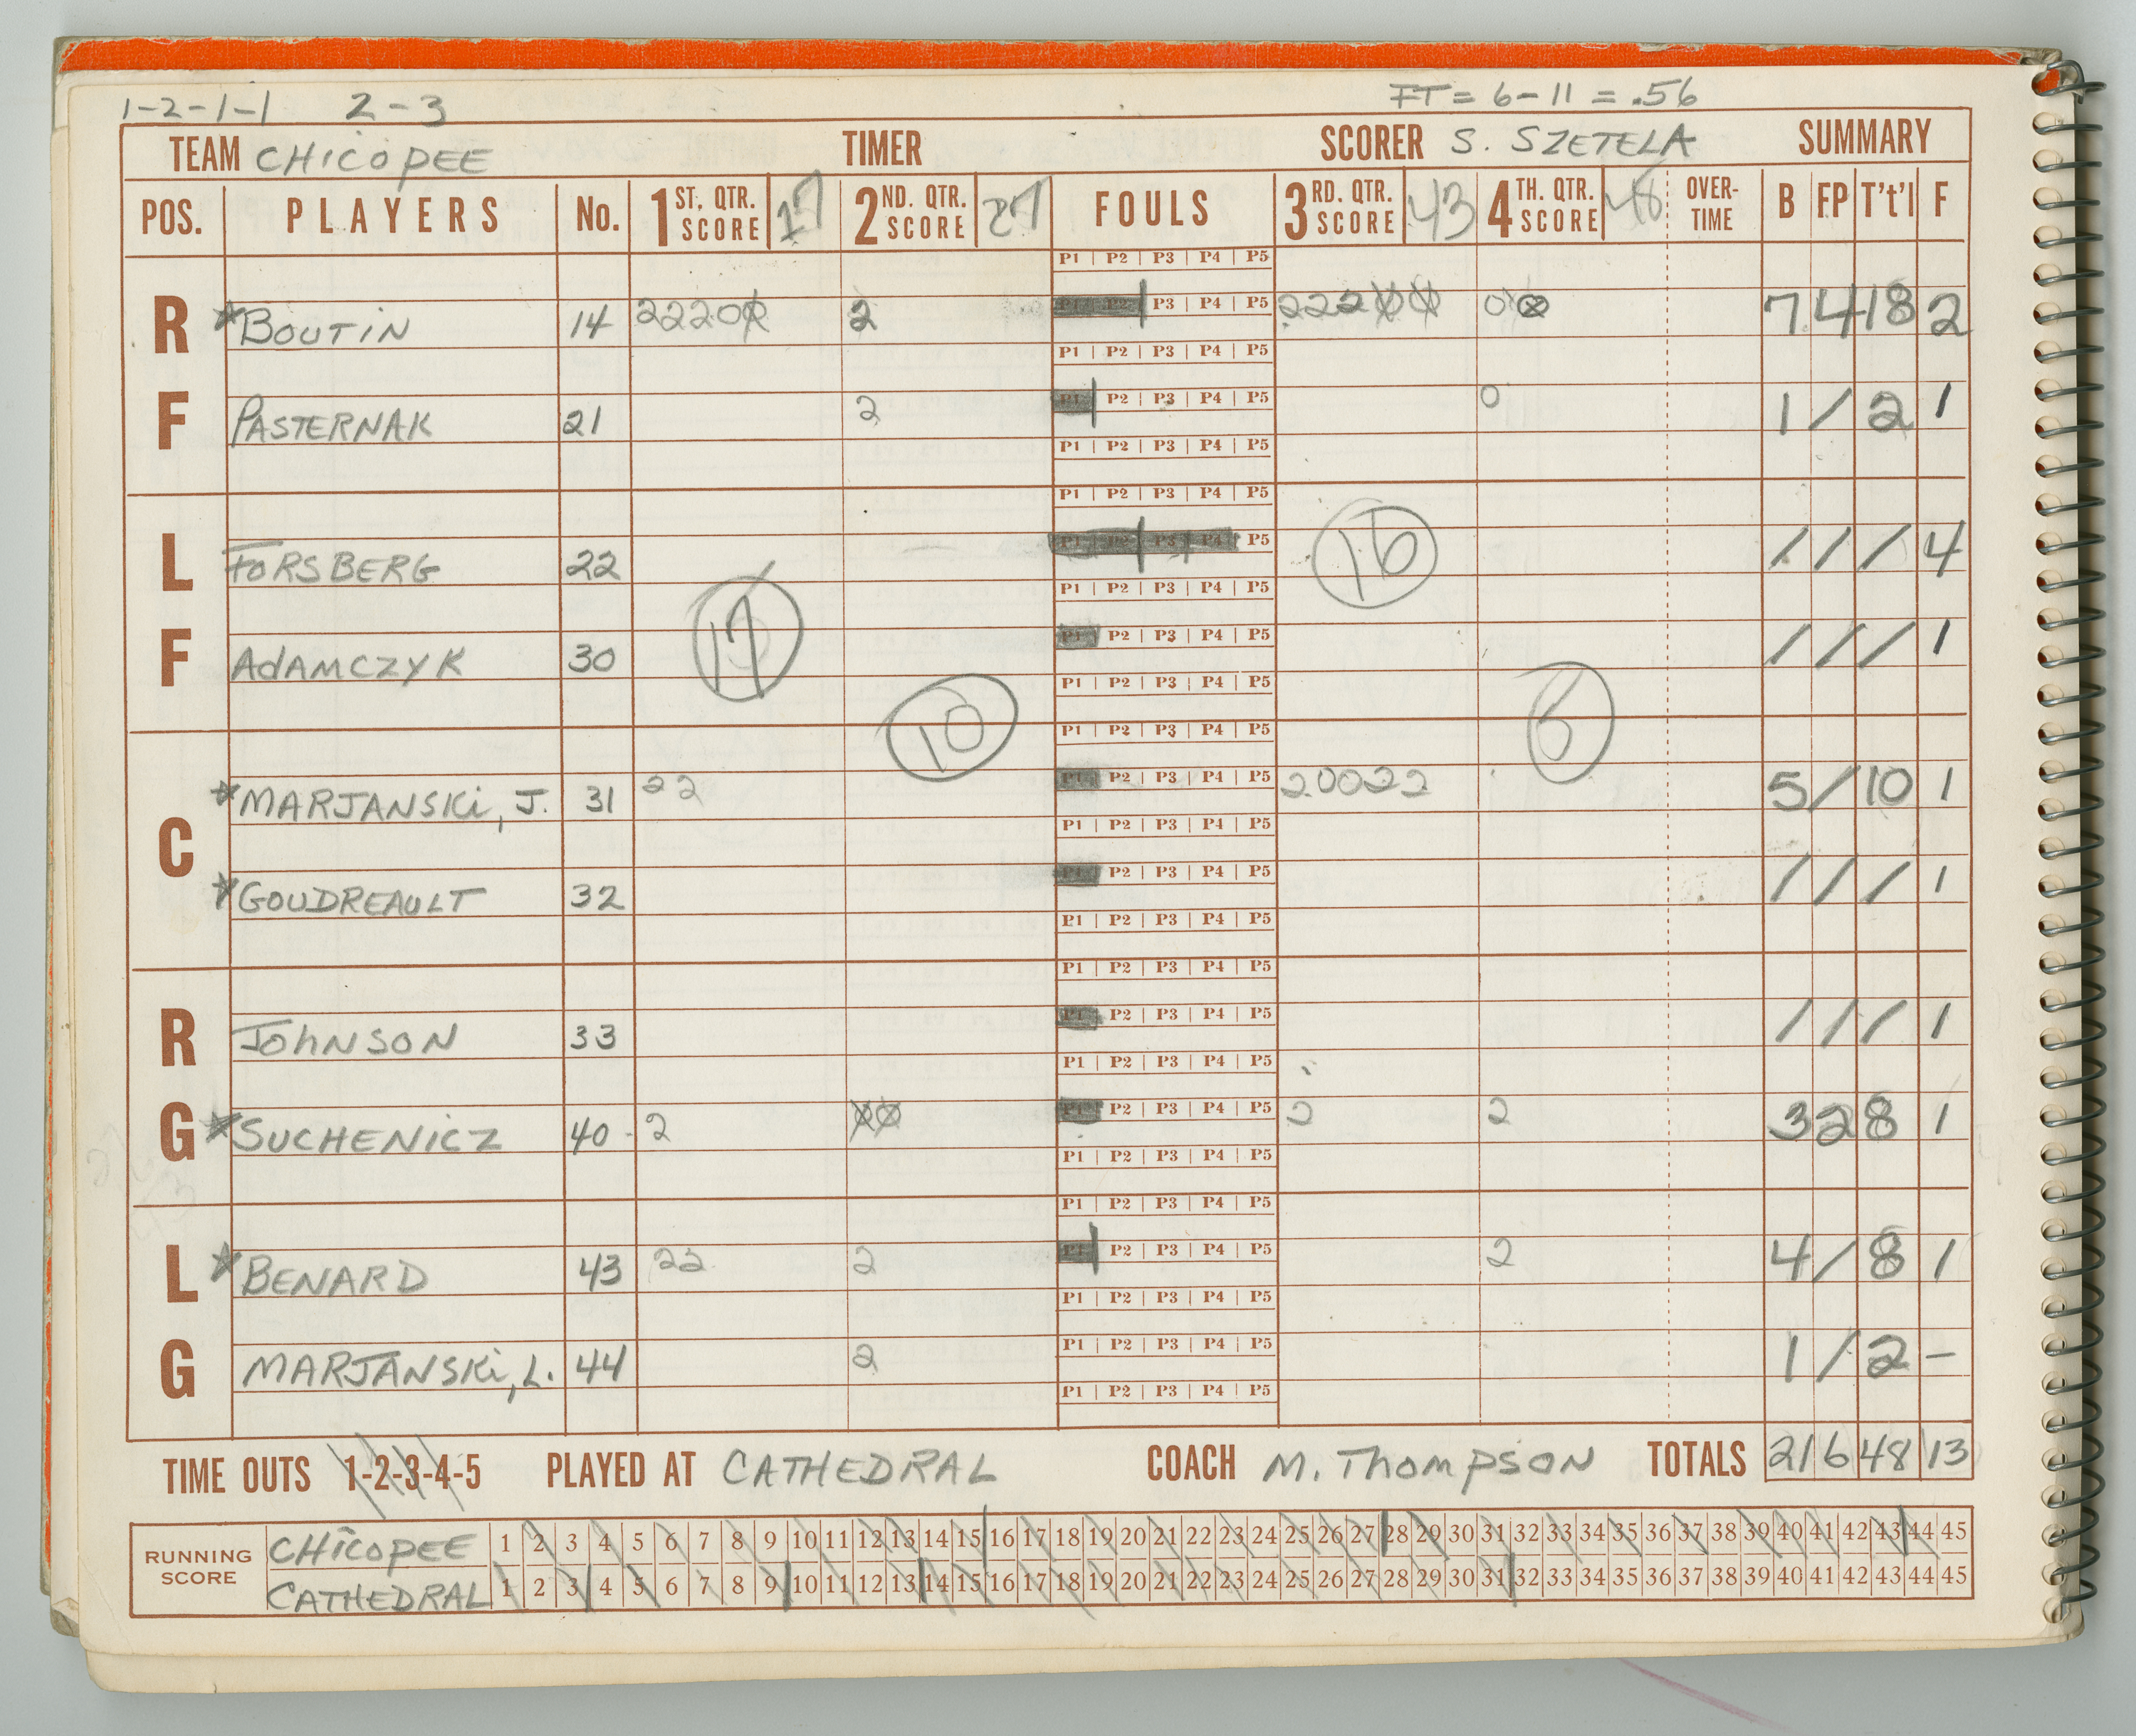 1-2-1-1 2-3 FT = 6-11 = .56
TEAM CHICOPEE TIMER SCORER S. SZETELA SUMMARY
POS. PLAYERS No. 1 ST. QTR. SCORE 17 2 ND. QTR. SCORE 27 FOULS 3 RD. QTR. SCORE 43 4 TH. QTR. SCORE 48 OVER-TIME B FP T't'l F
P1 | P2 | P3 | P4 | P5
RF ★BOUTIN 14 2220Ø 2 P1 | P2 | P3 | P4 | P5 222ØØ 0Ø 7 4 18 2
P1 | P2 | P3 | P4 | P5
PASTERNAK 21 2 P1 | P2 | P3 | P4 | P5 0 1 / 2 1
P1 | P2 | P3 | P4 | P5
P1 | P2 | P3 | P4 | P5
LF FORSBERG 22 P1 | P2 | P3 | P4 | P5 16 / / / 4
17 P1 | P2 | P3 | P4 | P5
ADAMCZYK 30 P1 | P2 | P3 | P4 | P5 / / / 1
P1 | P2 | P3 | P4 | P5
10 P1 | P2 | P3 | P4 | P5
C ★MARJANSKI, J. 31 22 P1 | P2 | P3 | P4 | P5 20022 5 / 10 1
P1 | P2 | P3 | P4 | P5
★GOUDREAULT 32 P1 | P2 | P3 | P4 | P5 / / / 1
P1 | P2 | P3 | P4 | P5
P1 | P2 | P3 | P4 | P5
RG JOHNSON 33 P1 | P2 | P3 | P4 | P5 / / / 1
P1 | P2 | P3 | P4 | P5
★SUCHENICZ 40 2 ØØ P1 | P2 | P3 | P4 | P5 2 2 3 2 8 1
P1 | P2 | P3 | P4 | P5
P1 | P2 | P3 | P4 | P5
LG ★BENARD 43 22 2 P1 | P2 | P3 | P4 | P5 2 4 / 8 1
P1 | P2 | P3 | P4 | P5
MARJANSKI, L. 44 2 P1 | P2 | P3 | P4 | P5 1 / 2 -
P1 | P2 | P3 | P4 | P5
TIME OUTS 1-2-3-4-5 PLAYED AT CATHEDRAL COACH M. THOMPSON TOTALS 21 6 48 13
RUNNING SCORE
CHICOPEE 1 2 3 4 5 6 7 8 9 10 11 12 13 14 15 16 17 18 19 20 21 22 23 24 25 26 27 28 29 30 31 32 33 34 35 36 37 38 39 40 41 42 43 44 45
CATHEDRAL 1 2 3 4 5 6 7 8 9 10 11 12 13 14 15 16 17 18 19 20 21 22 23 24 25 26 27 28 29 30 31 32 33 34 35 36 37 38 39 40 41 42 43 44 45